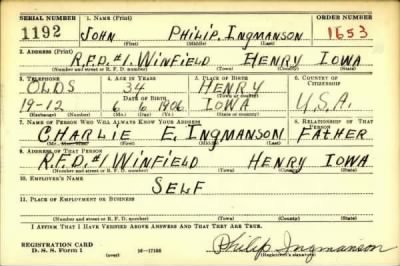 SERIAL NUMBER 1. NAME (Print) ORDER NUMBER
1192 JOHN PHILIP INGMANSON 1653
(First) (Middle) (Last)
2. ADDRESS (Print)
R.F.D. #1. WINFIELD HENRY IOWA
(Number and street or R. F. D. number) (Town) (County) (State)
3. TELEPHONE 4. AGE IN YEARS 5. PLACE OF BIRTH 6. COUNTRY OF CITIZENSHIP
OLDS 34 HENRY
DATE OF BIRTH (Town or county)
19-12 6 6 1906 IOWA U.S.A.
(Exchange) (Number) (Mo.) (Day) (Yr.) (State or country)
7. NAME OF PERSON WHO WILL ALWAYS KNOW YOUR ADDRESS 8. RELATIONSHIP OF THAT PERSON
CHARLIE E. INGMANSON FATHER
(First) (Middle) (Last)
9. ADDRESS OF THAT PERSON
R.F.D. #1 WINFIELD HENRY IOWA
(Number and street or R. F. D. number) (Town) (County) (State)
10. EMPLOYER'S NAME
SELF
11. PLACE OF EMPLOYMENT OR BUSINESS
(Number and street or R. F. D. number) (Town) (County) (State)
I AFFIRM THAT I HAVE VERIFIED ABOVE ANSWERS AND THAT THEY ARE TRUE.
REGISTRATION CARD
D. S. S. Form 1 (over) Philip Ingmanson
(Registrant's signature)